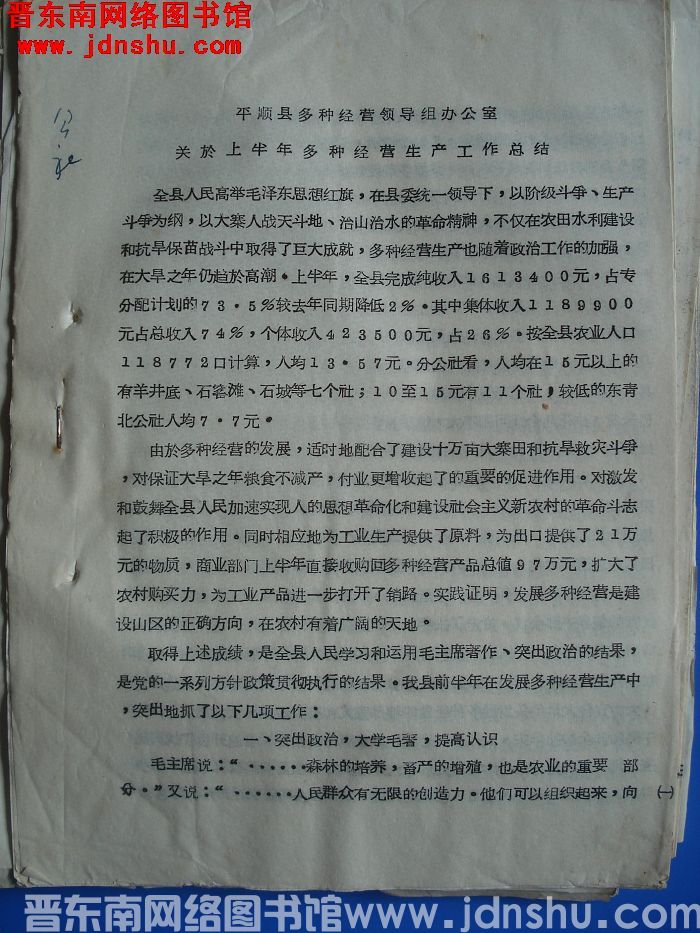 晋东南网络图书馆
www.jdnshu.com
平顺县多种经营领导组办公室
关於上半年多种经营生产工作总结
全县人民高举毛泽东思想红旗，在县委统一领导下，以阶级斗争、生产
斗争为纲，以大寨人战天斗地、治山治水的革命精神，不仅在农田水利建设
和抗旱保苗战斗中取得了巨大成就，多种经营生产也随着政治工作的加强，
在大旱之年仍趋於高潮。上半年，全县完成纯收入1613400元，占专
分配计划的73·5%较去年同期降低2%。其中集体收入1189900
元占总收入74%，个体收入423500元，占26%。按全县农业人口
118772口计算，人均13·57元。分公社看，人均在15元以上的
有羊井底、石窑滩、石城等七个社；10至15元有11个社，较低的东青
北公社人均7·7元。
由於多种经营的发展，适时地配合了建设十万亩大寨田和抗旱救灾斗争
，对保证大旱之年粮食不减产，付业更增收起了的重要的促进作用。对激发
和鼓舞全县人民加速实现人的思想革命化和建设社会主义新农村的革命斗志
起了积极的作用。同时相应地为工业生产提供了原料，为出口提供了21万
元的物质，商业部门上半年直接收购回多种经营产品总值97万元，扩大了
农村购买力，为工业产品进一步打开了销路。实践证明，发展多种经营是建
设山区的正确方向，在农村有着广阔的天地。
取得上述成绩，是全县人民学习和运用毛主席著作、突出政治的结果，
是党的一系列方针政策贯彻执行的结果。我县前半年在发展多种经营生产中
，突出地抓了以下几项工作：
一、突出政治，大学毛著，提高认识
毛主席说：“······森林的培养，畜产的增殖，也是农业的重要 部
分。”又说：“······人民群众有无限的创造力。他们可以组织起来，向
(一)
晋东南网络图书馆www.jdnshu.com